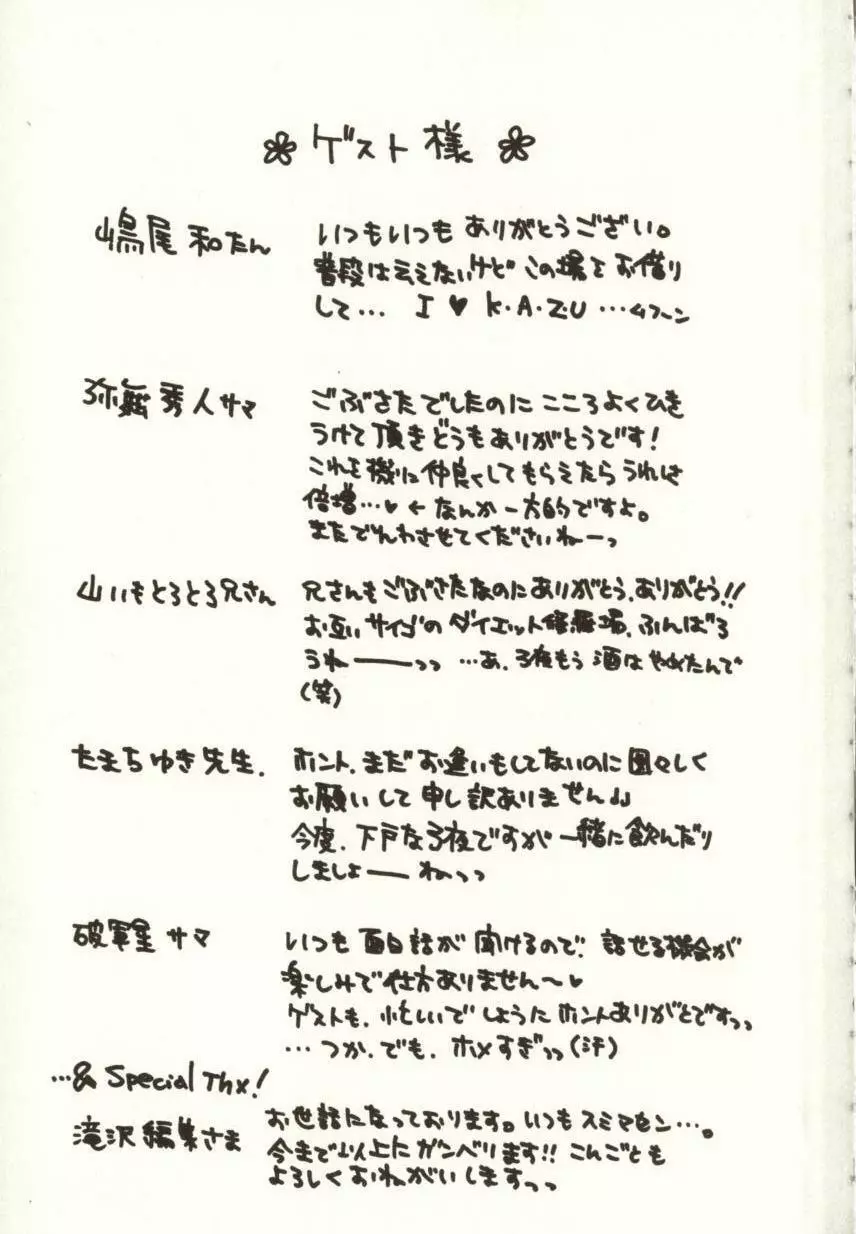 ゲスト様
嶋尾和たん
いつもいつもありがとうござい。
普段は云えないけどこの場をお借り
して… I ♥ K・A・Z・U …ムフーン
秀人サマ
ごぶさたでしたのにこころよくひき
うけて頂きどうもありがとうです!
これを機に仲良くしてもらえたらうれしさ
倍増…♥←なんか一方的ですよ。
またでんわさせてくださいねーっ
山いもとろとろ兄さん
兄さんもごぶさたなのにありがとう、ありがとう!!
お互いサイゴのダイエット修羅場、ふんばろ
うねーーーっっ …あ、3夜もう酒はやめたんで
(笑)
たまちゆき先生.
ホント、まだお逢いもしてないのに図々しく
お願いして申し訳ありません
今度、下戸な3夜ですが一緒に飲んだり
しましょーー ねっっ
破軍星サマ
いつも面白話が聞けるので、話せる機会が
楽しみで仕方ありません〜♥
ゲストも、忙しいでしょうにホントありがとですっっ
…つか、でも、ホメすぎっっ(汗)
…& Special Thx!
滝沢編集さま
お世話になっております。いつもスミマセン…。
今まで以上にガンバリます!! こんごとも
よろしくおねがいしますっっ